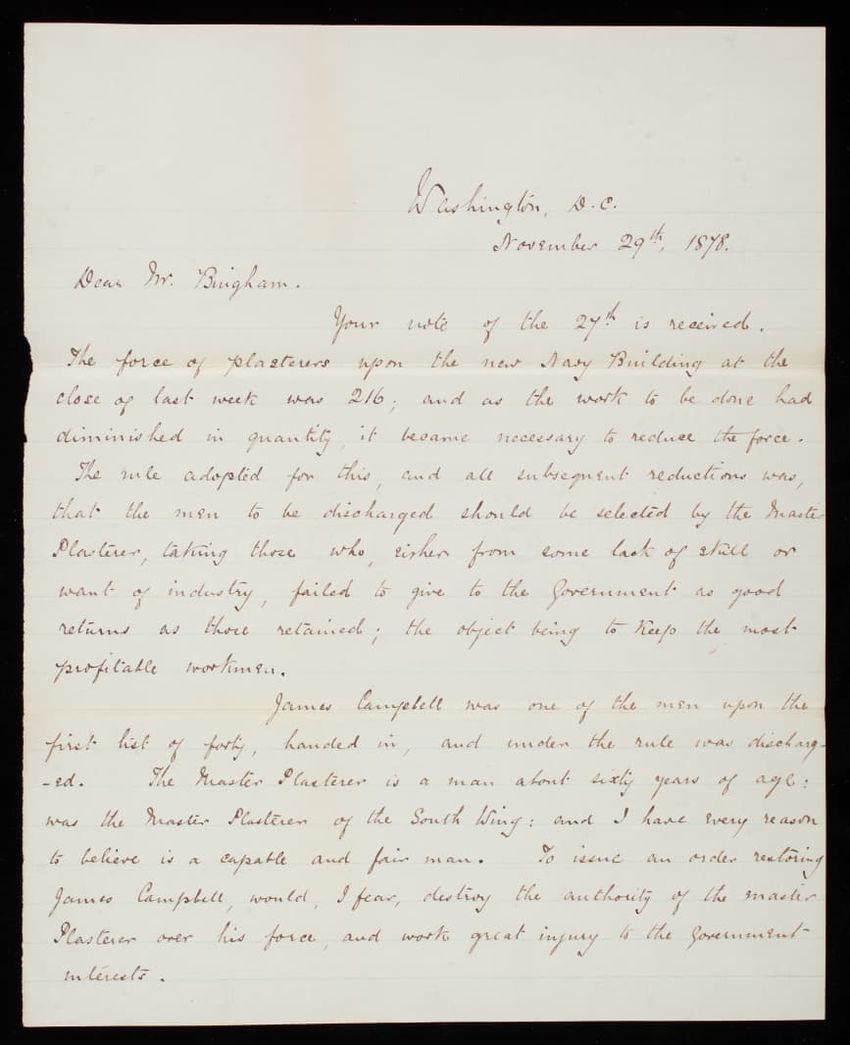 Washington, D.C.
November 29th, 1878.
Dear Mr. Bingham.
Your note of the 27th is received.
The force of plasterers upon the new Navy Building at the
close of last week was 216; and as the work to be done had
diminished in quantity, it became necessary to reduce the force.
The rule adopted for this, and all subsequent reductions was,
that the men to be discharged should be selected by the Master
Plasterer, taking those who, either from some lack of skill or
want of industry, failed to give to the Government as good
returns as those retained; the object being to keep the most
profitable workmen.
James Campbell was one of the men upon the
first list of forty, handed in, and under the rule was discharg-
-ed. The Master Plasterer is a man about sixty years of age:
was the Master Plasterer of the South Wing: and I have every reason
to believe is a capable and fair man. To issue an order restoring
James Campbell, would, I fear, destroy the authority of the master
Plasterer over his force, and work great injury to the Government
interests.